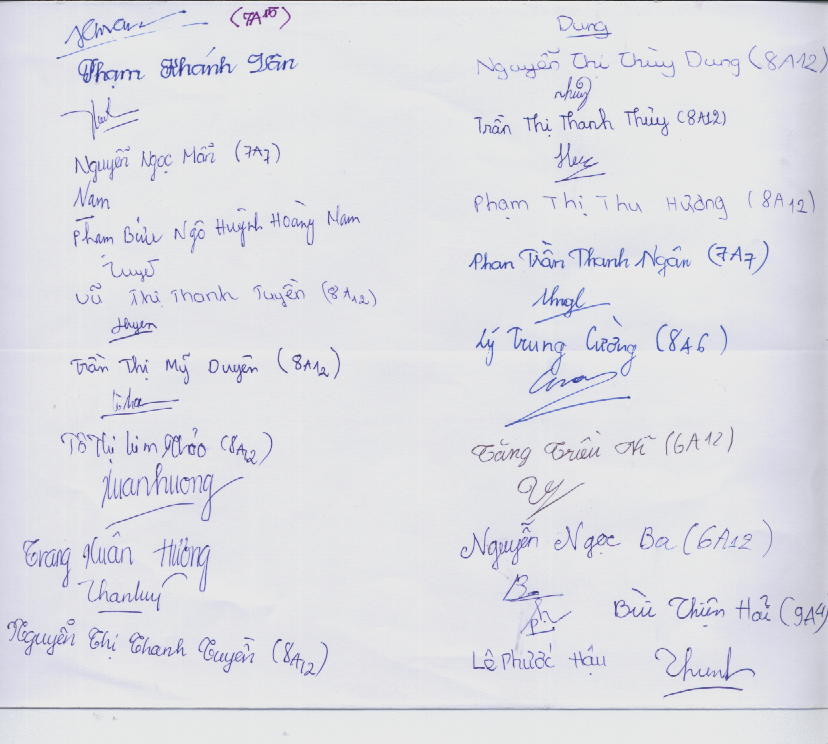 (7A15)
Phạm Khánh Vân
Nguyễn Ngọc Mẫn (7A7)
Nam
Phạm Bửu Ngô Huỳnh Hoàng Nam
Tuyề
Vũ Thị Thanh Tuyền (8A12)
Duyen
Trần Thị Mỹ Duyên (8A12)
Tô Thị Kim Thảo (8A12)
Xuanhuong
Trang Xuân Hương
Nguyễn Thị Thanh Tuyền (8A12)
Dung
Nguyễn Thị Thùy Dung (8A12)
Trần Thị Thanh Thủy (8A12)
Phạm Thị Thu Hương (8A12)
Phan Trần Thanh Ngân (7A7)
Lý Trung Cường (8A6)
Tăng Triều Vĩ (6A12)
Nguyễn Ngọc Ba (6A12)
Bùi Thiện Hải (9A4)
Lê Phước Hậu